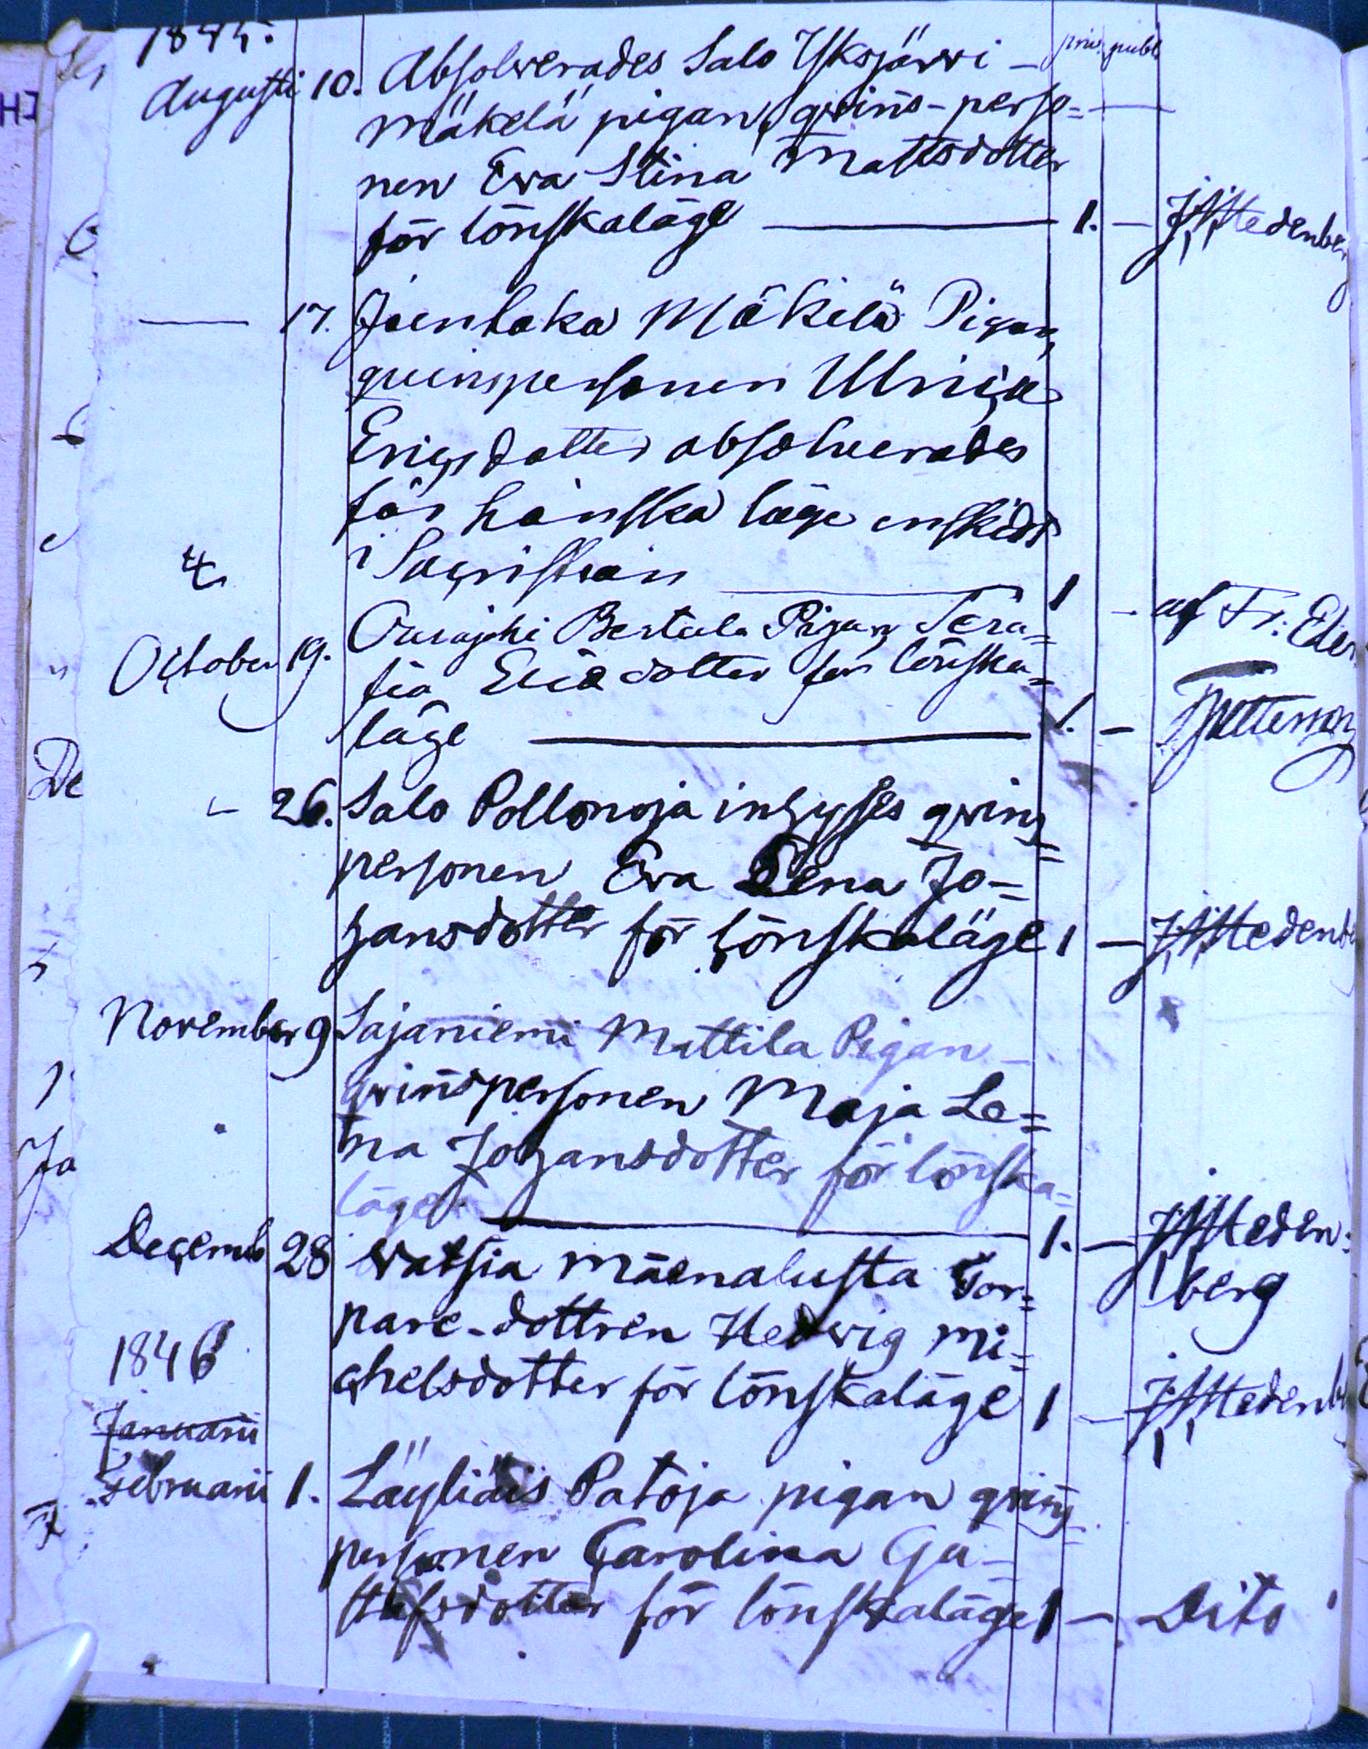 1845. priv. publ.
Augusti 10. Absolverades Salo Yksjärvi
Mäkelä pigan, qvins-perso=
nen Eva Stina Mattsdotter
för lönskaläge 1. — Stedenberg
— 17. Joenhaka Mäkilä Pigan,
quinspersonen Ulrica
Ericsdotter absolverades
för lönska läge enskildt
i Sacristian 1 — af Fr: Eden
October 19. Bertula Pigan Sera=
fia dotter för lönska=
läge 1. —
— 26. Salo Pollonoja inhyses qvins
personen Eva Lena Jo=
hansdotter för lönskaläge 1 — Stedenb
November 9 Sajaniemi Mattila Pigan
qvinspersonen Maja Le=
na Johansdotter för lönska=
läge. 1. — Steden:
berg
Decemb 28 Vatsia Mäenalusta Tor=
pare-dottren Hedvig Mi=
chelsdotter för lönskaläge 1 — Stedenb
1846
Januarii
Februarii 1. Läyliäis Patoja pigan qvins
personen Carolina Gu=
stafsdotter för lönskaläge 1 — Dito